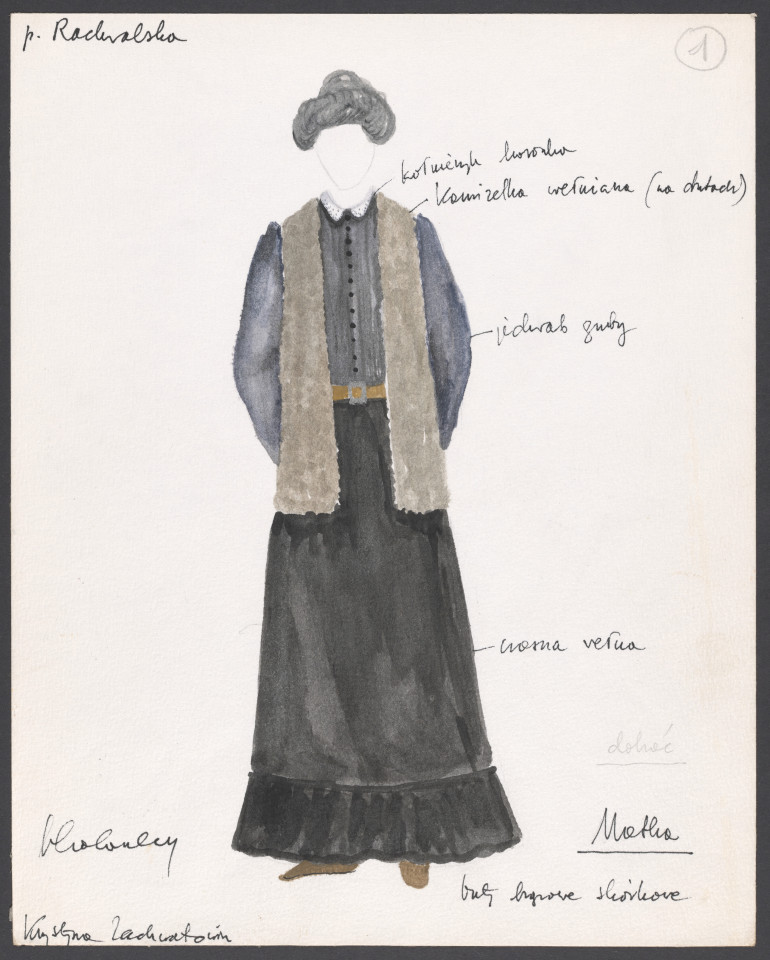 p. Radwalska
1
kołnierzyk koronka
Kamizelka wełniana (na drutach)
jedwab gruby
czarna wełna
dohoć
Matka
buty brązowe skórkowe
Krystyna Zachwatowicz